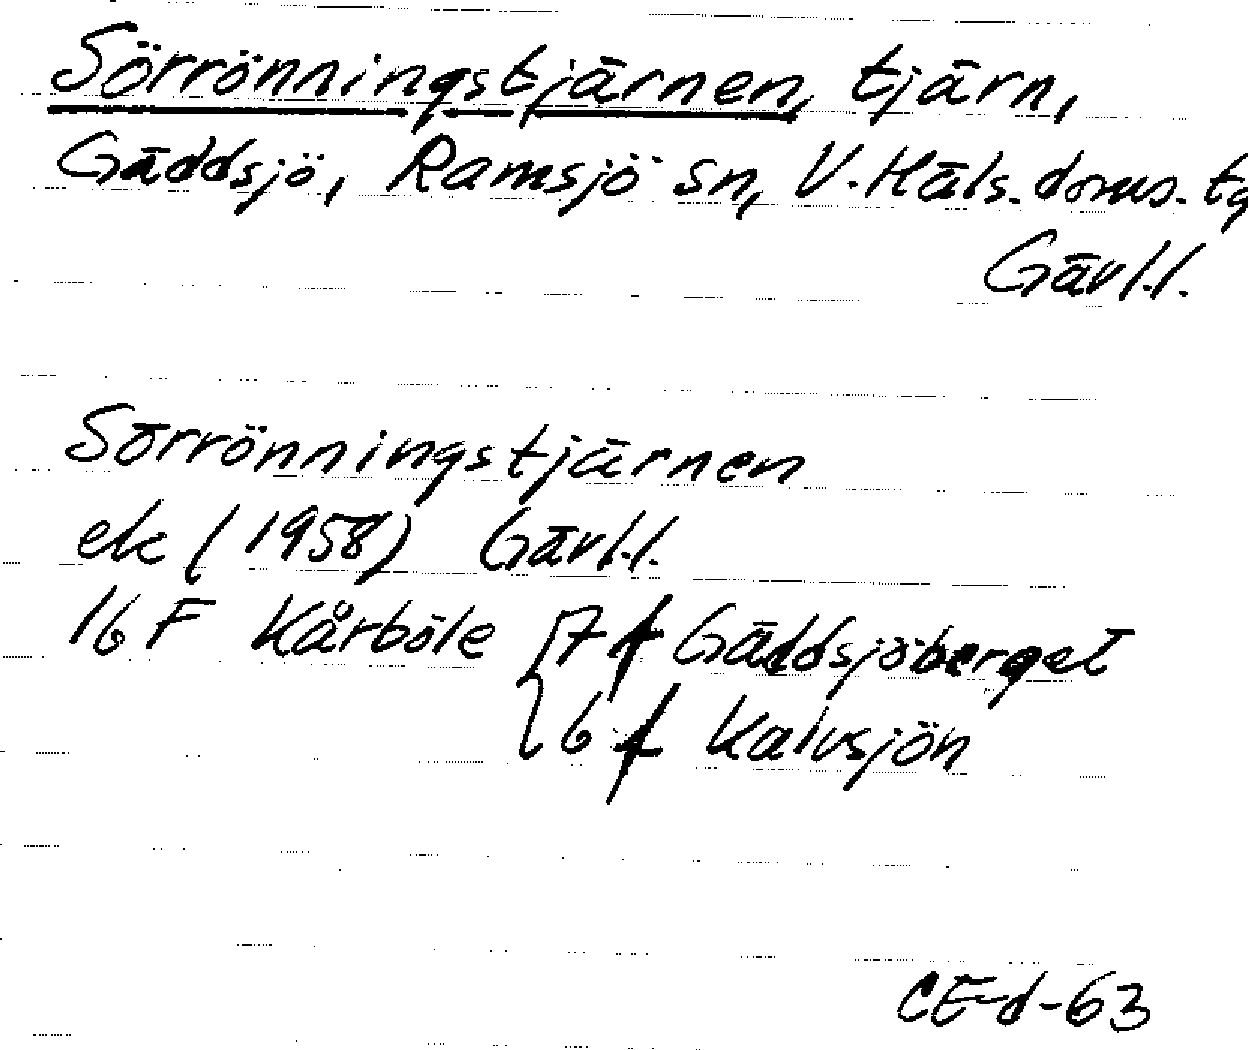 Sörrönningstjärnen, tjärn,
Gäddsjö, Ramsjö sn, V. Häls. doms. tg
Gävl.l.
Sörrönningstjärnen
ek (1958) Gävl.l.
16 F Kårböle 7 f Gäddsjöberget
6 f Kalvsjön
CE-d-63